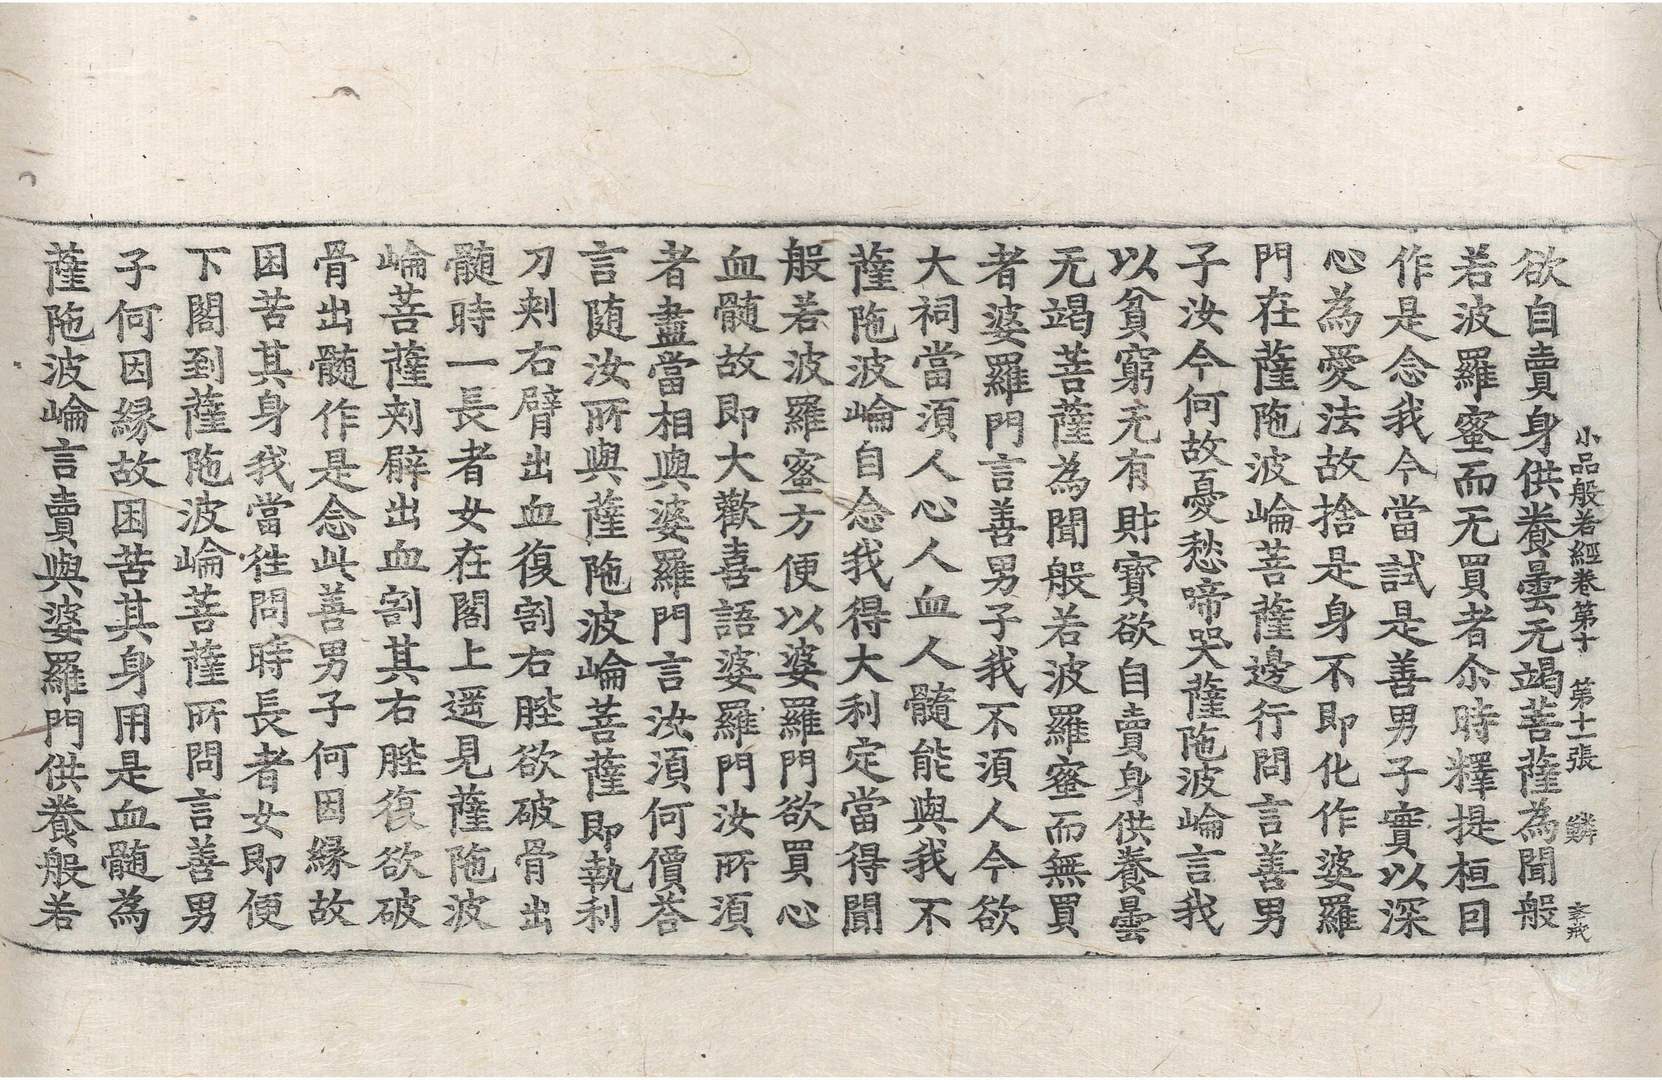 小品般若經卷第十　第十一張　鱗　玄戒
欲自賣身供養曇无竭菩薩為聞般
若波羅蜜而无買者尒時釋提桓因
作是念我今當試是善男子實以深
心為愛法故捨是身不即化作婆羅
門在薩陁波崙菩薩邊行問言善男
子汝今何故憂愁啼哭薩陁波崙言我
以貧窮无有財寶欲自賣身供養曇
无竭菩薩為聞般若波羅蜜而無買
者婆羅門言善男子我不湏人今欲
大祠當湏人心人血人髓能與我不
薩陁波崙自念我得大利定當得聞
般若波羅蜜方便以婆羅門欲買心
血髓故即大歡喜語婆羅門汝所湏
者盡當相與婆羅門言汝湏何價荅
言随汝所與薩陁波崙菩薩即執利
刀刾右臂出血復割右髀欲破骨出
髓時一長者女在閣上遥見薩陁波
崙菩薩刾臂出血割其右髀復欲破
骨出髓作是念此善男子何因緣故
困苦其身我當往問時長者女即便
下閣到薩陁波崙菩薩所問言善男
子何因縁故困苦其身用是血髓為
薩陁波崙言賣與婆羅門供養般若